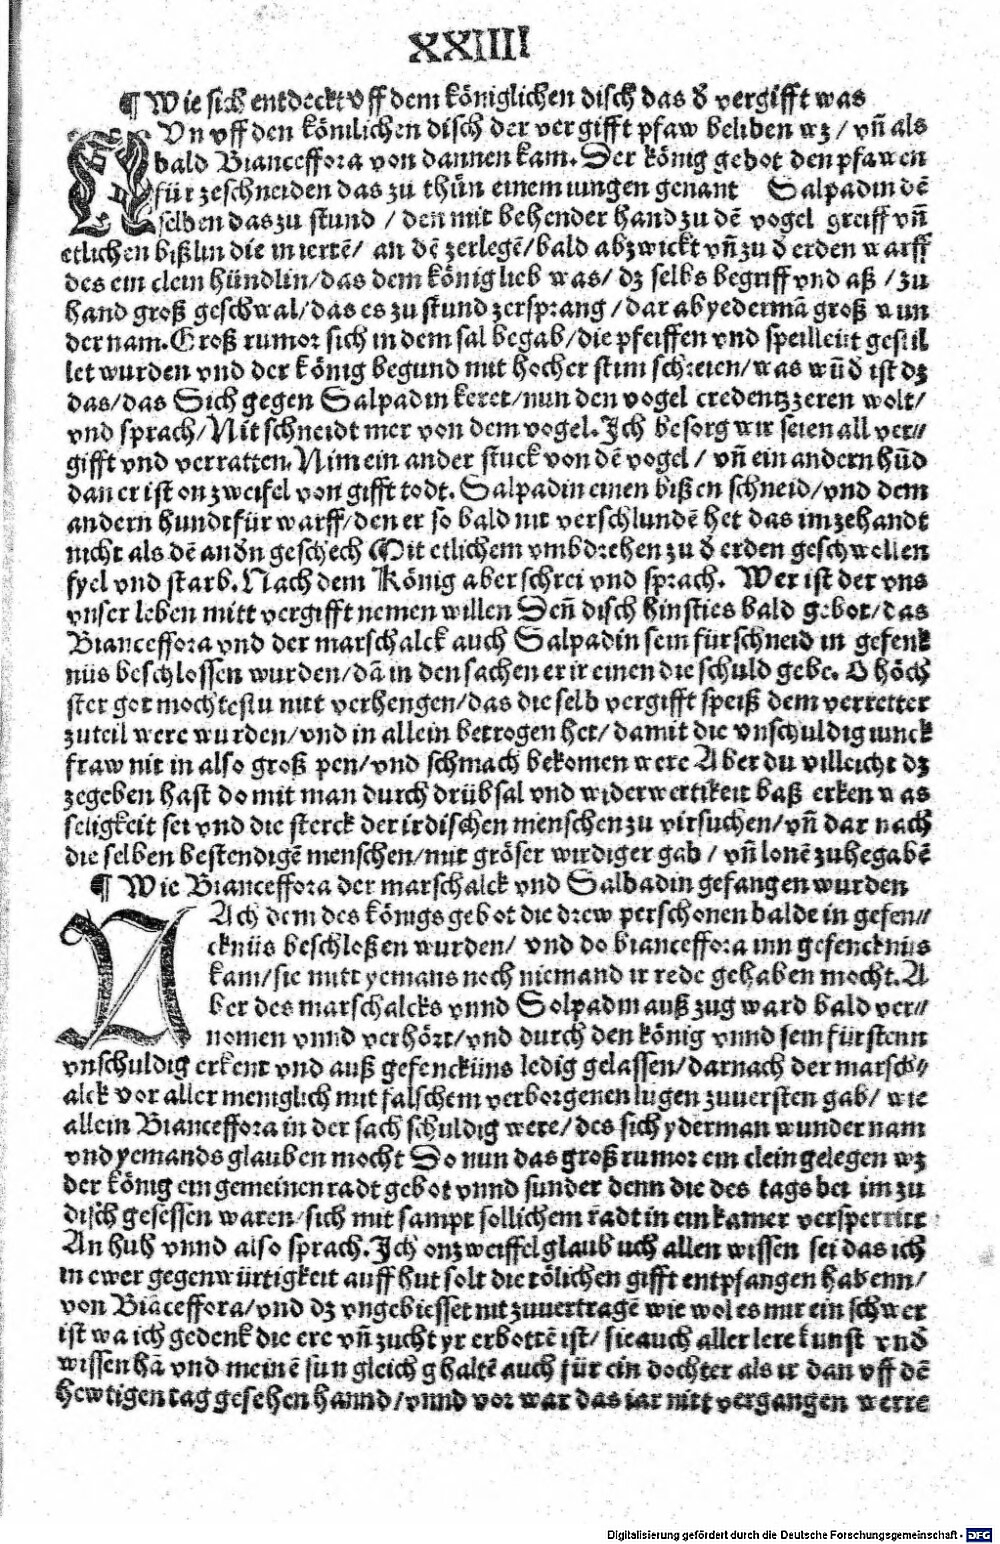 XXIIII
¶ Wie sich entdeckt vff dem königlichen disch das d̕ vergifft was
NVn vff den könilichen disch der vergifft pfaw beliben wz / vñ als
bald Bianceffora von dannen kam. Der könig gebot den pfawen
für zeschneiden das zu thůn einem iungen genant Salpadin dē
selben das zu stund / den mit behender hand zu dē vogel greiff vñ
etlichen bißlin die in irrtē / an dē zerlegē / bald abzwickt vñ zu d̕ erden warff
des ein clein hündlin / das dem könig lieb was / dz selbs begriff vnd aß / zu
hand groß geschwal / das es zu stund zersprang / dar ab yedermā groß wun
der nam. Groß rumor sich in dem sal begab / die pfeiffen vnd speilleüt gestil
let wurden vnd der könig begund mit hocher stim schreien / was wūd ist dz
das / das Sich gegen Salpadin keret / nun den vogel credentzzeren wolt /
vnd sprach / Nit schneidt mer von dem vogel. Ich besorg wir seien all ver⸗
gifft vnd verratten. Nim ein ander stuck von dē vogel / vñ ein andern hūd
dan er ist on zweifel von gifft todt. Salpadin einen bißen schneid / vnd dem
andern hundt für warff / den er so bald nit verschlundē het das im zehandt
nicht als dē andn̄ geschech Mit etlichem vmbdrehen zu d̕ erden geschwellen
fyel vnd starb. Nach dem König aber schrei vnd sprach. Wer ist der vns
vnser leben mitt vergifft nemen willen Den̄ disch hinsties bald gebot / das
Bianceffora vnd der marschalck auch Salpadin sein fürschneid in gefenk
nüs beschlossen wurden / dā in den sachen er ir einen die schuld gebe. O höch
ster got mochtestu nitt verhengen / das die selb vergifft speiß dem verretter
zuteil were wurden / vnd in allein betrogen het / damit die vnschuldig iunck
fraw nit in also groß pen / vnd schmach bekomen were Aber du villeicht dz
zegeben hast do mit man durch drübsal vnd widerwertikeit baß erken was
seligkeit sei vnd die sterck der irdischen menschen zu virsuchen / vñ dar nach
die selben bestendigē menschen / mit gröser wirdiger gab / vñ lonē zuhegabē
¶ Wie Bianceffora der marschalck vnd Salbadin gefangen wurden
NAch dem des königs gebot die drew perschonen balde in gefen⸗
cknüs beschloßen wurden / vnd do bianceffora inn gefencknüs
kam / sie mitt yemans noch niemand ir rede gehaben mocht. A
ber des marschalcks vnnd Solpadin auß zug ward bald ver⸗
nomen vnnd verhört / vnd durch den könig vnnd sein fürstenn
vnschuldig erkent vnd auß gefencküns ledig gelassen / darnach der marsch⸗
alck vor aller meniglich mit falschem verborgenen lugen zuuersten gab / wie
allein Bianceffora in der sach schuldig were / des sich yderman wunder nam
vnd yemands glauben mocht Do nun das groß rumor ein clein gelegen wz
der könig ein gemeinen radt gebot vnnd sunder denn die des tags bei im zu
disch gesessen waren / sich mit sampt sollichem radt in ein kamer versperrirt
An hub vnnd also sprach. Ich onzweiffel glaub uch allen wissen sei das ich
in ewer gegenwürtigkeit auff hut solt die tölichen gifft entpfangen habenn /
von Biāceffora / vnd dz vngebiesset nit zuuertragē wie wol es mir ein schwer
ist wa ich gedenk die ere vñ zucht yr erbottē ist / sie auch aller lere kunst vnd
wissen hā vnd meinē sun gleich ghaltē auch für ein dochter als ir dan vff dē
hewtigen tag gesehen hannd / vnnd vor war das iar nitt vergangen werre
Digitalisierung gefördert durch die Deutsche Forschungsgemeinschaft - DFG